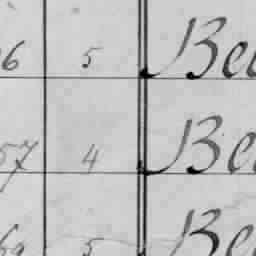 6 5 Be
57 4 Be
69 5 Be